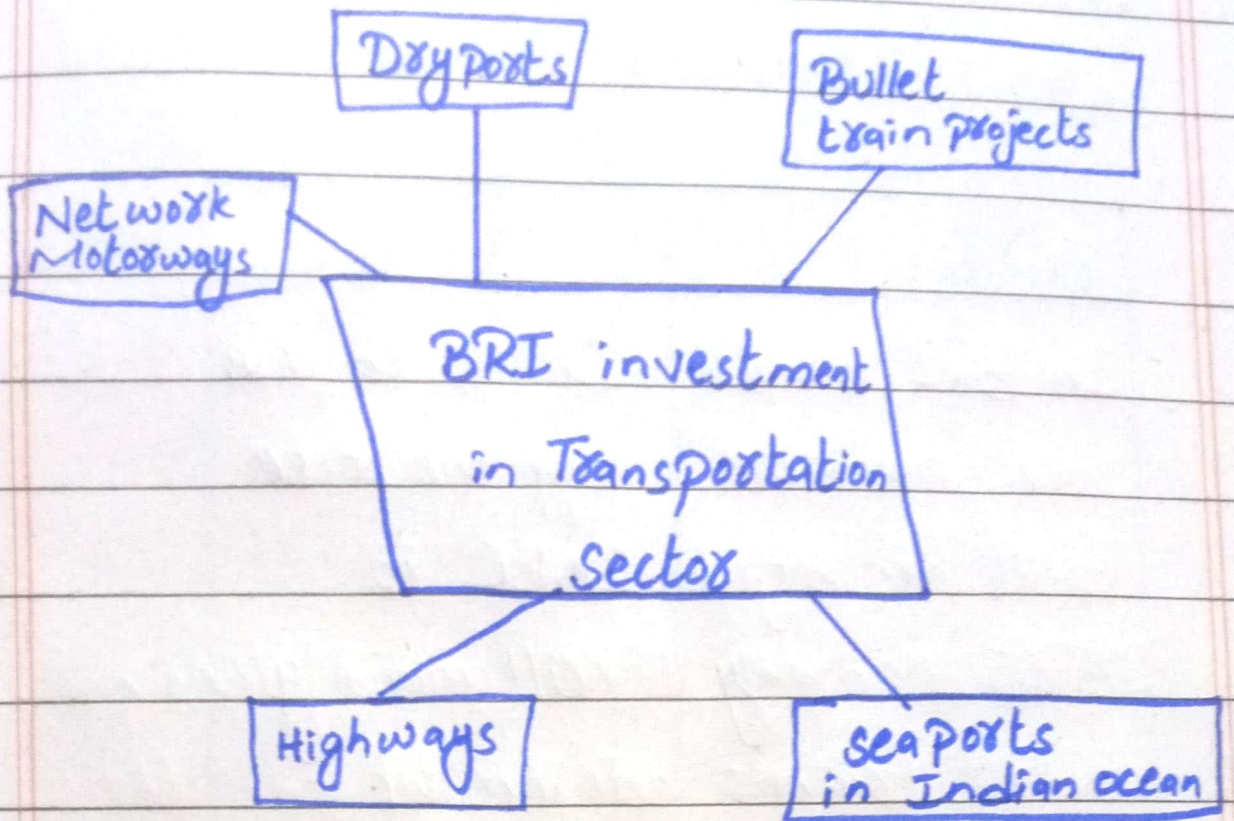 Dry ports
Bullet
train projects
Network
Motorways
BRI investment
in Transportation
sector
Highways
seaports
in Indian ocean